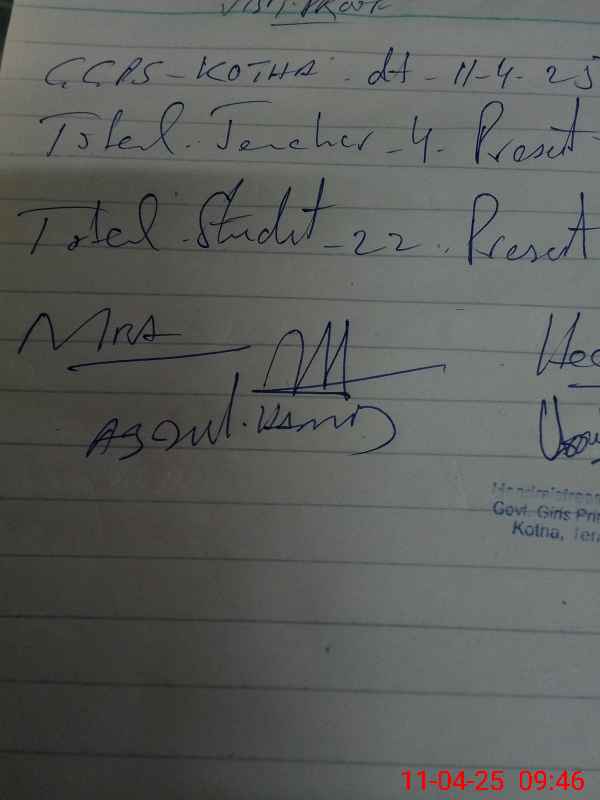 VISIT. PROOF
GGPS - KOTHA. dt - 11-4-25
Total. Teacher - 4. Present -
Total. Studet - 22. Present
MRA Hea
ABDUL. HAMID
Headmistress
Govt. Girls Pri
Kotha,
11-04-25 09:46